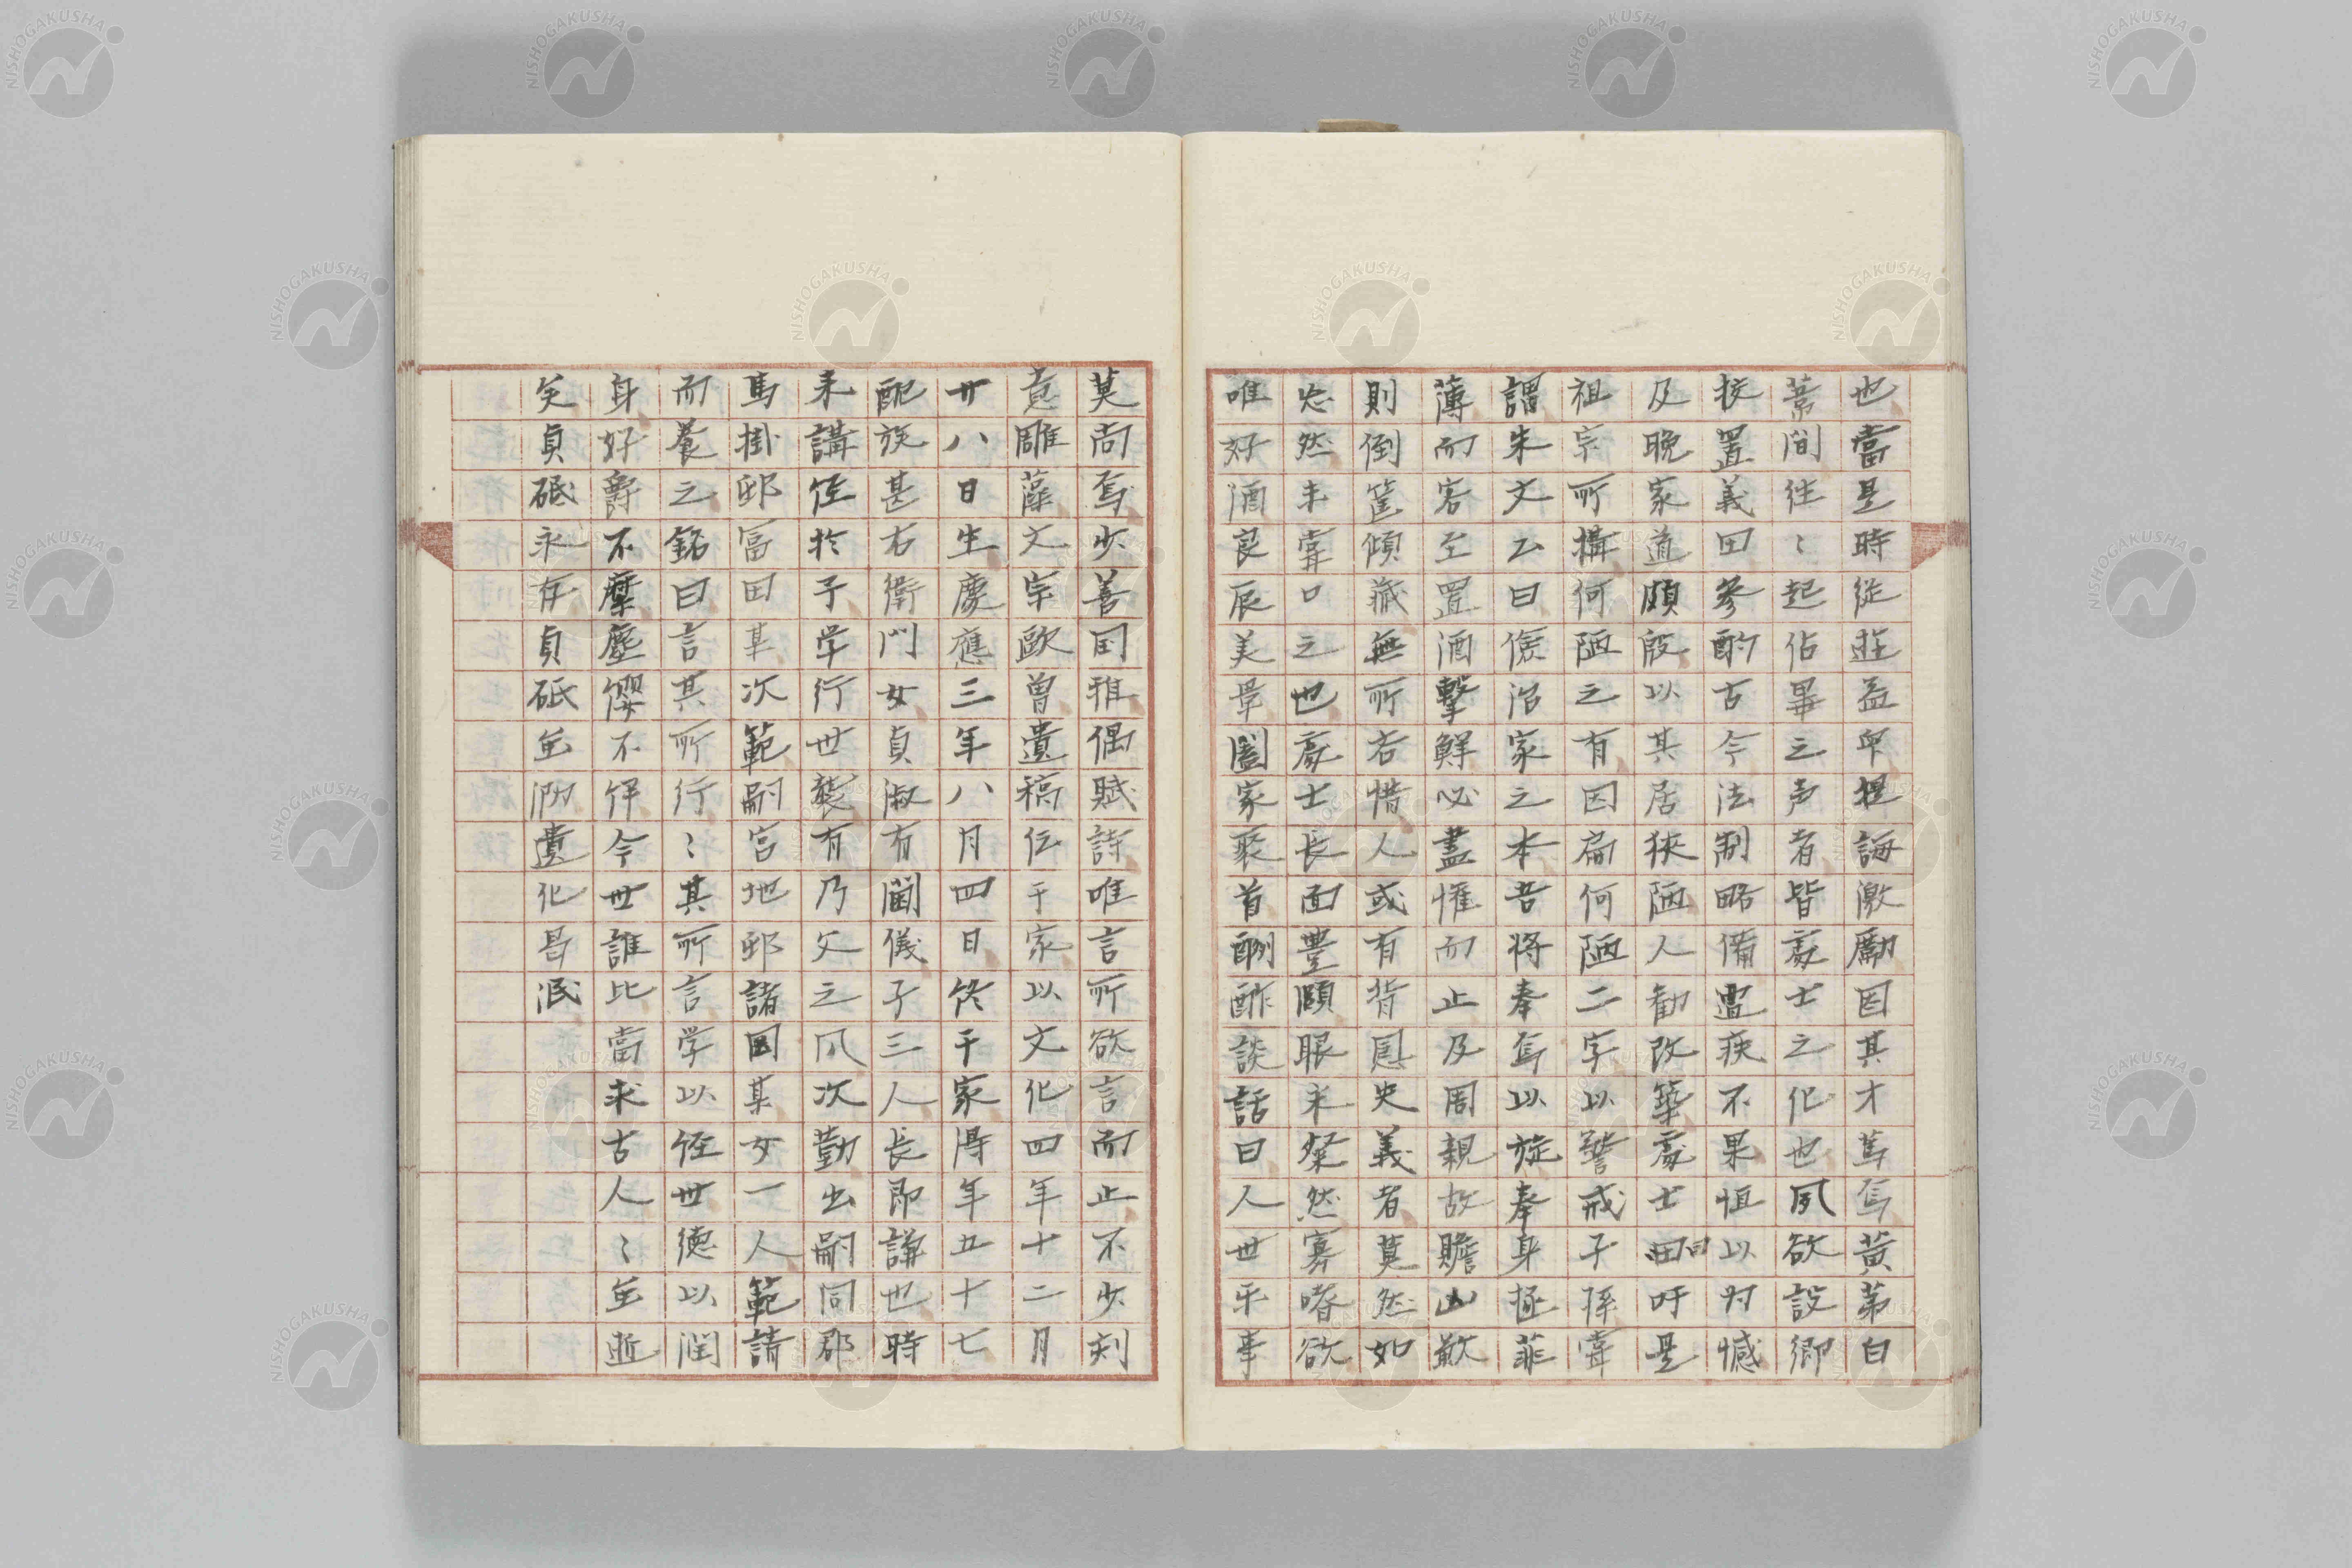 也當是時従遊益中提誨激勵因其才篤焉黄茅白
葦間往々起佔畢之声者皆処士之化也夙欲設郷
校置義田參酌古今法制略備遭疾不果恒以为憾
及晩家道頗殷以其居狭陋人勧改築処士曰吁是
祖宗所搆何陋之有因扁何陋二字以警戒子孫嘗
謂朱文公曰倹治家之本吾将奉焉以旋奉身極菲
薄而客至置酒撃鮮必盡懽而止及周親故贍山歉
則倒筐傾蔵無所吝惜人或有背恩失義者莫然如
忘然未嘗口之也処士長面豊頤眼未粲然寡嗜欲
唯好酒良辰美景闔家聚首酬酢談話曰人世平事
莫尚焉少善国雅偶賦詩唯言所欲言而止不少刻
意雕藻文宗歐曽遺稿伝于家以文化四年十二月
廿八日生慶應三年八月四日終于家得年五十七
配族甚右衛門女貞淑有閫儀子三人長即謙也時
未講侄於予学行世襲有乃父之風次勤出嗣同郡
馬掛邨冨田某次範嗣宮地邨諸国某女一人範請
而養之銘曰言其所行々其所言学以経世徳以潤
身好爵不縻塵纓不絆今世誰比當求古人々至逝
矣貞砥永存貞砥至泐遺化曷泯
NISHOGAKUSHA